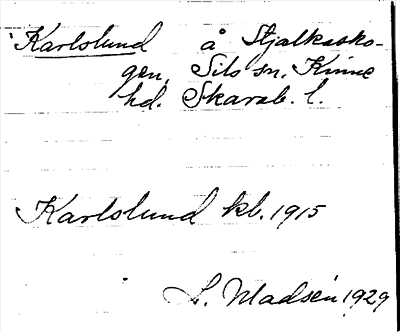 Karlslund å Stjälkasko-
gen, Sils sn. Kinne
hd. Skarab. l.
Karlslund kb. 1915
L. Madsén 1929